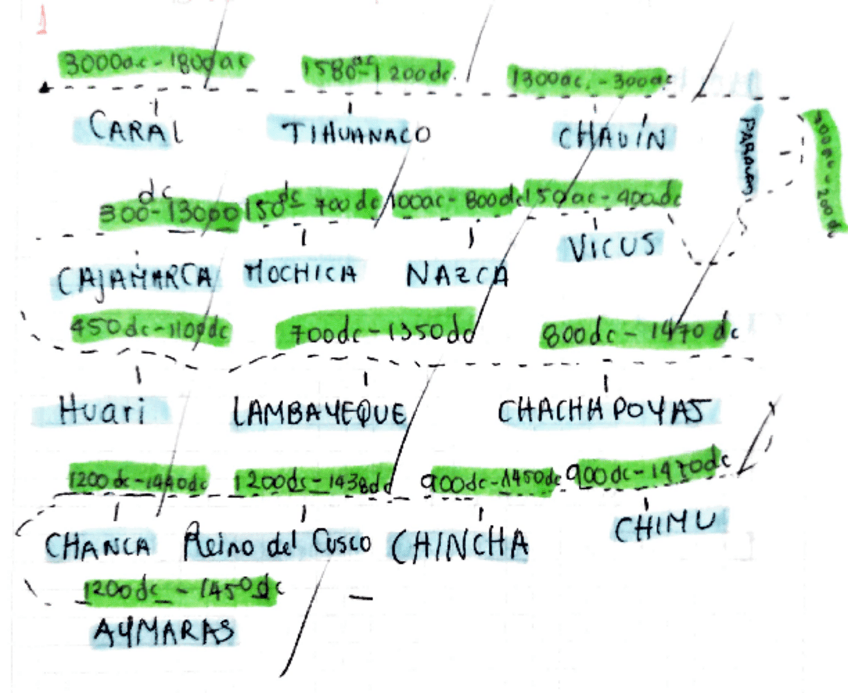 1
3000ac - 1800ac 1580ac - 1200dc 1300ac. - 300ac
CARAL TIHUANACO CHAVÍN PARACAS
300dc - 1300 150dc - 700dc 100ac - 800dc 150ac - 900dc
CAJAMARCA MOCHICA NAZCA VICUS
450dc - 1100dc 700dc - 1350dc 800dc - 1470dc
Huari LAMBAYEQUE CHACHAPOYAS
1200dc - 1440dc 1200dc - 1438dc 900dc - 1450dc 900dc - 1470dc
CHANCA Reino del Cusco CHINCHA CHIMU
1200dc - 1450dc
AYMARAS